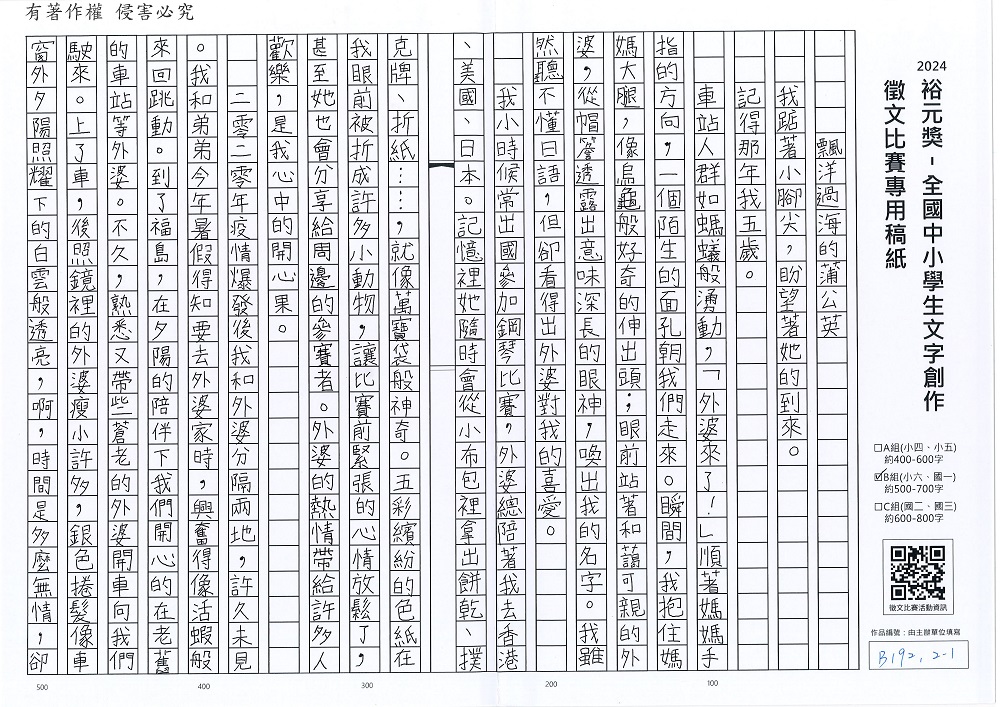 有著作權 侵害必究
2024
裕元獎-全國中小學生文字創作
徵文比賽專用稿紙
□A組(小四、小五)
約400-600字
☑B組(小六、國一)
約500-700字
□C組(國二、國三)
約600-800字
徵文比賽活動資訊
作品編號：由主辦單位填寫
B192, 2-1
飄洋過海的蒲公英
我踮著小腳尖，盼望著她的到來。
記得那年我五歲。
車站人群如螞蟻般湧動，「外婆來了！」順著媽媽手
指的方向，一個陌生的面孔朝我們走來。瞬間，我抱住媽
媽大腿，像烏龜般好奇的伸出頭；眼前站著和藹可親的外
婆，從帽簷透露出意味深長的眼神，喚出我的名字。我雖
然聽不懂日語，但卻看得出外婆對我的喜愛。
我小時候常出國參加鋼琴比賽，外婆總陪著我去香港
、美國、日本。記憶裡她隨時會從小布包裡拿出餅乾、撲
克牌、折紙……，就像萬寶袋般神奇。五彩繽紛的色紙在
我眼前被折成許多小動物，讓比賽前緊張的心情放鬆了，
甚至她也會分享給周邊的參賽者。外婆的熱情帶給許多人
歡樂，是我心中的開心果。
二零二零年疫情爆發後我和外婆分隔兩地，許久未見
。我和弟弟今年暑假得知要去外婆家時，興奮得像活蝦般
來回跳動。到了福島，在夕陽的陪伴下我們開心的在老舊
的車站等外婆。不久，熟悉又帶些蒼老的外婆開車向我們
駛來。上了車，後照鏡裡的外婆瘦小許多，銀色捲髮像車
窗外夕陽照耀下的白雲般透亮，啊，時間是多麼無情，卻
100
200
300
400
500